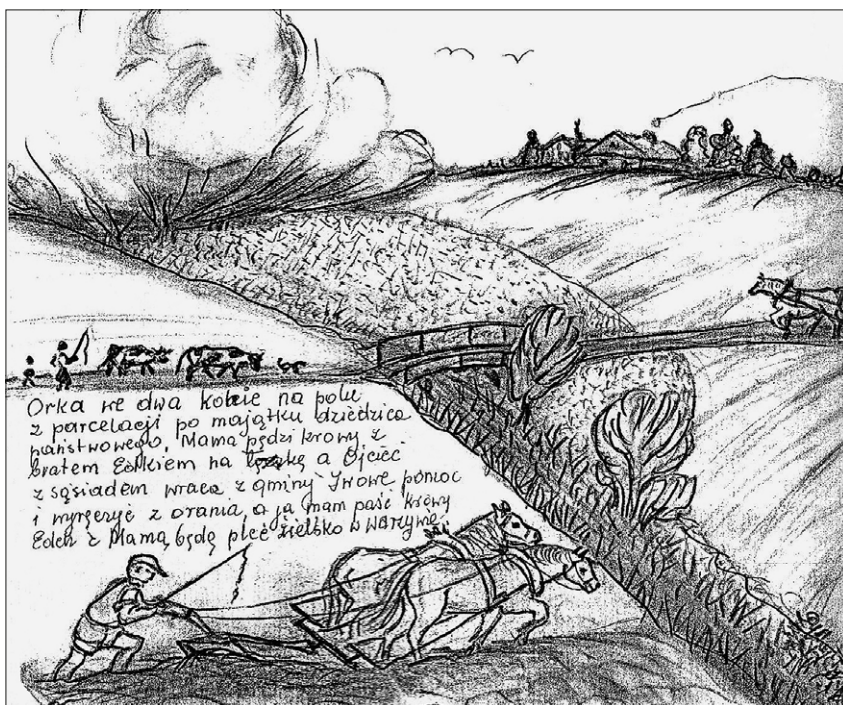 Orka we dwa konie na polu
z parcelacji po majątku dziedzica
państwowego, Mama pędzi krowy z
bratem Edkiem na łąkę a Ojciec
z sąsiadem wraca z gminy Jrowe pomoc
i wyręczyć z orania, a ja mam paść krowy
Edek z Mamą będą pleć zielsko w warzywie